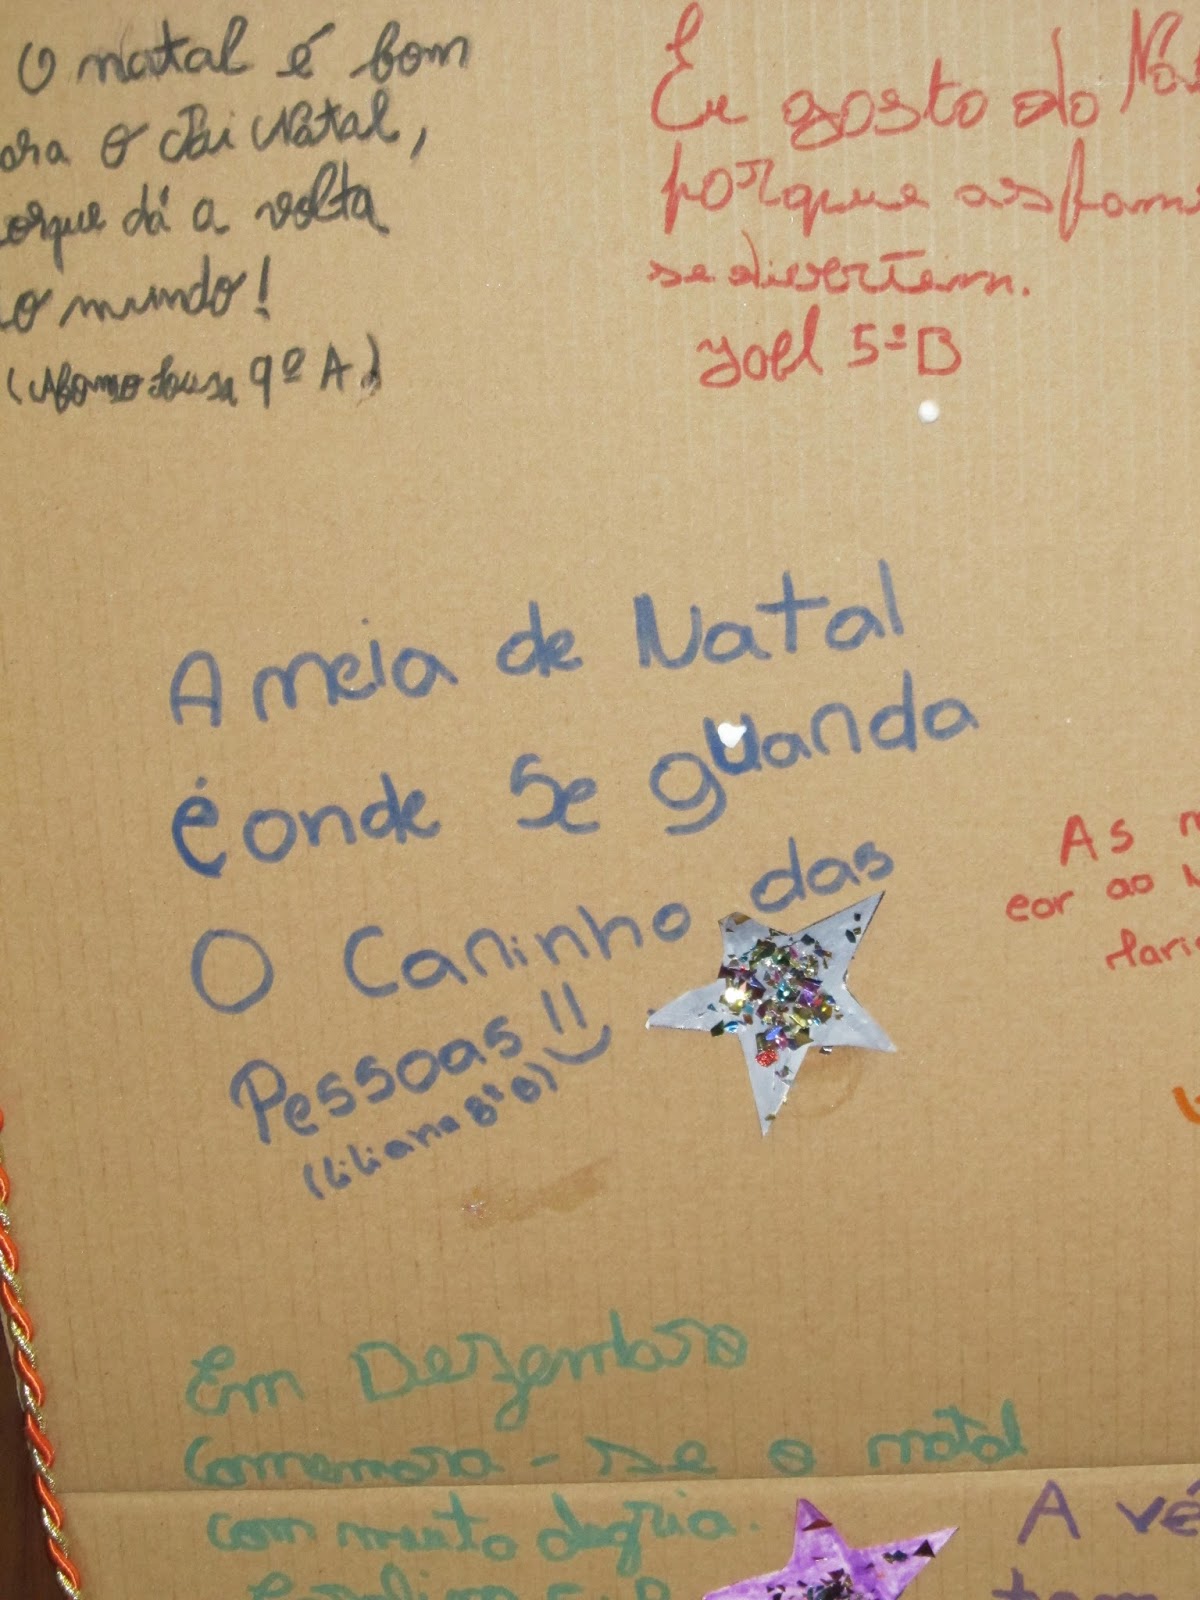 O natal é bom
ara o Pai Natal,
orque dá a volta
ao mundo!
(Afonso Sousa 9º A)
Eu gosto do Na
porque as fami
se divertem.
Joel 5º B
A meia de Natal
é onde se guanda
O Caninho das
Pessoas!!
(Liliana 8º B)
As
eor ao N
Marin
Em Dezembro
Comemora-se o natal
com muita alegria.
Carolina 5º B
A vé
tem